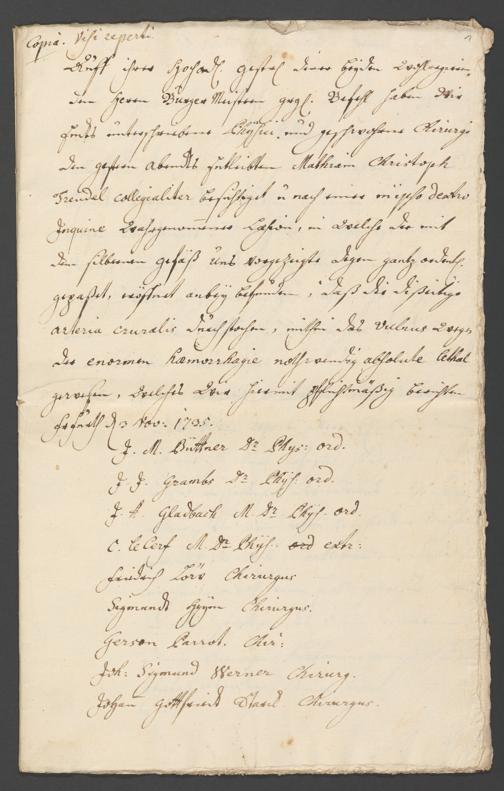 Copia. Visi reperti.
Auff ihrer Hochadl. gestr. derer beyden Wohlregieren-
den Herren Burger Meistern ggl. Befehl haben Wir
Endts unterschriebene Physici und geschwohrne Chirurgi
den gestern Abendts entleibten Mathiam Christoph
Trendel collegialiter besichtiget u nach einer in ipso dextro
Inguine Wahrgenomenen Læsion, in Welche der mit
dem silbernen gefäß uns vorgezeigte degen gantz ordentl.
gepasset, eröffnet anbey befunden, daß die disseitige
arteria cruralis durchstochen, mithin das vulnus wegen
der enormen hæmorrhagie nothwendig absolute lethal
gewesen, Welches Wir hiermit pflichtmäßig berichten
3 Nov: 1735.
J. M. Büttner Dr Phys: ord.
J. J. Grambs Dr Phys. ord.
J. H. Gladbach M. Dr Phys. ord.
C. le Cerf M. Dr Phys. ord extr:
Friedrich Lörs Chirurgus
Sigmundt Heym Chirurgus.
Gerson Parrot. Chir:
Joh: Sigmund Werner Chirurg.
Johann Gottfriedt Chirurgus.